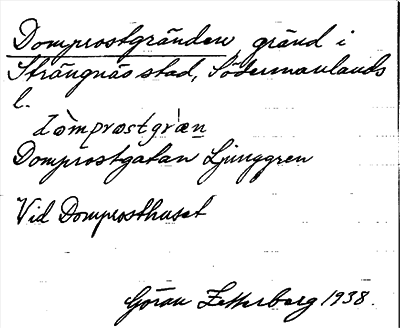 Domprostgränden, gränd i
Strängnäs stad, Södermanlands
l.
dòmprostgræ̀n
Domprostgatan Ljunggren
Vid Domprosthuset
Göran Zetterberg 1938.